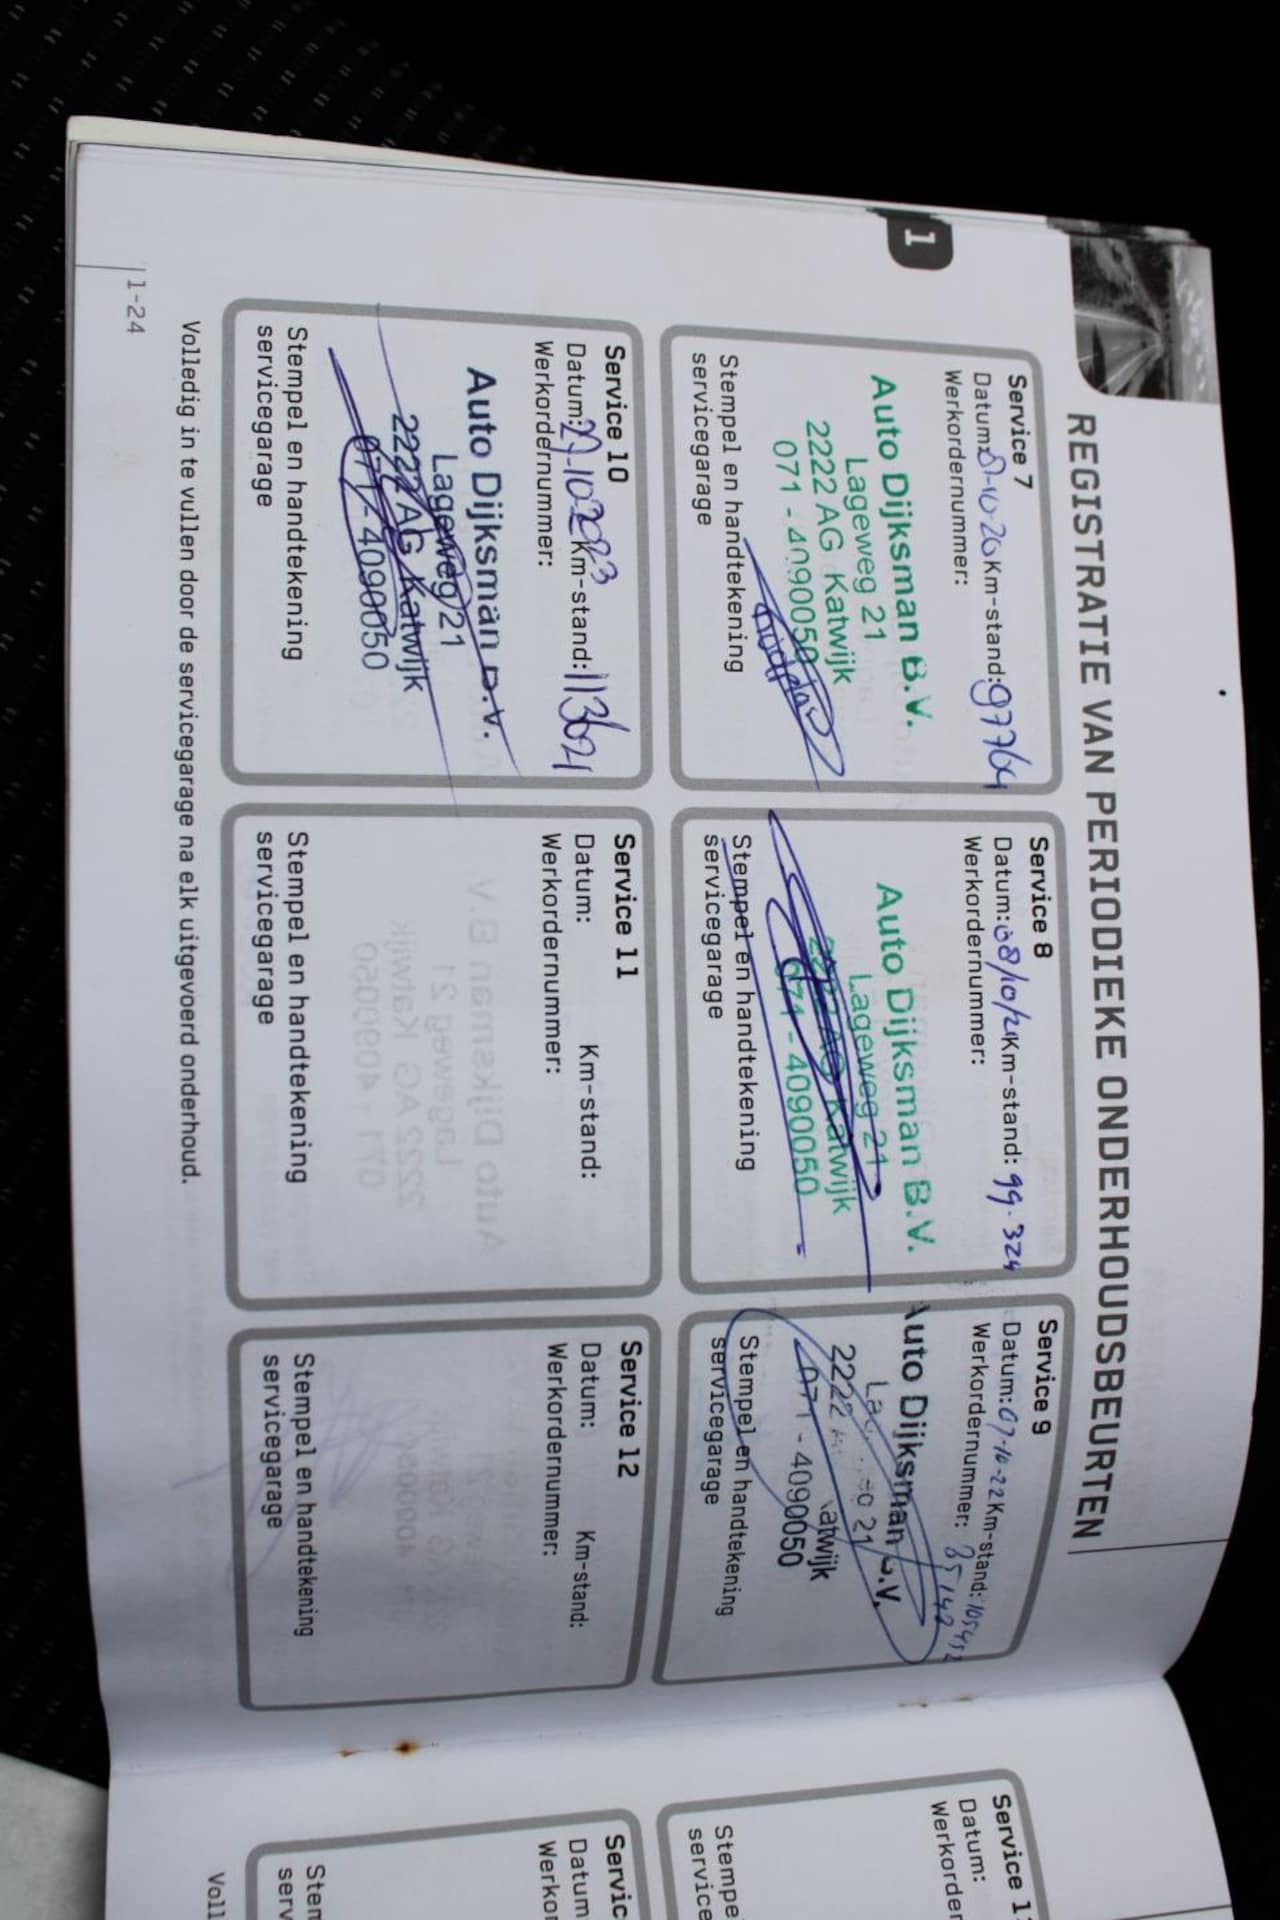 REGISTRATIE VAN PERIODIEKE ONDERHOUDSBEURTEN
1
Service 7
Datum: 8-10-20 Km-stand: 97764
Werkordernummer:
Auto Dijksman B.V.
Lageweg 21
2222 AG Katwijk
071 - 4090050
Stempel en handtekening
servicegarage
Service 8
Datum: 08/10/21 Km-stand: 99.324
Werkordernummer:
Auto Dijksman B.V.
Lageweg 21
2222 AG Katwijk
071 - 4090050
Stempel en handtekening
servicegarage
Service 9
Datum: 07-10-22 Km-stand: 105452
Werkordernummer: 35142
Auto Dijksman B.V.
21
2222 Katwijk
071 - 4090050
Stempel en handtekening
servicegarage
Service 10
Datum: 27-10-2023 Km-stand: 113621
Werkordernummer:
Auto Dijksman B.V.
Lageweg 21
2222 AG Katwijk
071 - 4090050
Stempel en handtekening
servicegarage
Service 11
Datum: Km-stand:
Werkordernummer:
Stempel en handtekening
servicegarage
Service 12
Datum: Km-stand:
Werkordernummer:
Stempel en handtekening
servicegarage
Volledig in te vullen door de servicegarage na elk uitgevoerd onderhoud.
1-24
Service 1
Datum:
Werkorder
Stempe
service
Servic
Datum
Werkor
Stem
serv
Voll